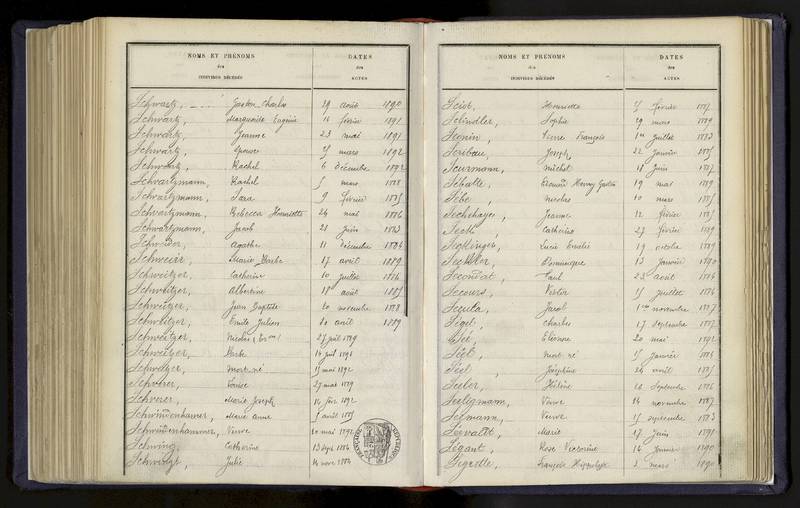 NOMS ET PRÉNOMS
des
INDIVIDUS DÉCÉDÉS
DATES
des
ACTES
Schwartz, Gaston Charles 29 août 1890
Schwartz, Marguerite Eugénie 14 février 1891
Schwartz, Jeanne 23 mai 1891
Schwartz, épouse mars 1892
Schwartz, Rachel 6 décembre 1892
Schwartzmann, Rachel 5 mars 1888
Schwartzmann, Sara 9 février 1885
Schwartzmann, Rebecca Henriette 24 mai 1886
Schwartzmann, Jacob 28 juin 1883
Schweder, Agathe 11 décembre 1884
Schweier, Marie Barbe 17 avril 1889
Schweitzer, Catherine 10 juillet 1886
Schweitzer, Albertine 18 août 1885
Schweitzer, Jean Baptiste 20 novembre 1888
Schweitzer, Emile Julien 30 août 1889
Schweitzer, Nicolas 27 juil 1889
Schweitzer, Barbe 14 juil 1891
Schweitzer, mort né 15 mai 1892
Schwerer, Veuve 27 mai 1889
Schwerer, Marie Joseph 14 févr 1892
Schwindenhamer, Marie Anne 5 août 1885
Schwindenhammer, Veuve 20 mai 1892
Schwing, Catherine 13 sept 1886
Julie nove 1884
RÉPUBLIQUE FRANÇAISE
NOMS ET PRÉNOMS
des
INDIVIDUS DÉCÉDÉS
DATES
des
ACTES
Henriette février 1887
Scindler, Sophie 29 mars 1889
Pierre François 1er juillet 1883
Scribeau, Joseph 22 janvier 1885
Scurmann, Michel 18 juin 1887
19 mai 1889
Sèbe, Nicolas 10 mars 1885
Sechehaye, Jeanne 12 février 1885
Sech, Catherine 27 février 1889
Secklinger, Lucie Emélie 19 octobre 1889
Seckler, Dominique 13 janvier 1890
Secondat, Paul 23 août 1886
Secours, Victor 15 juillet 1886
Secula, Jacob 1er novembre 1887
Segel, Charles 17 septembre 1887
Sée, Eléonore 20 mai 1892
Séel, mort né 15 janvier 1886
Séel, Joséphine 24 avril 1885
Seeler, Hélène 20 septembre 1886
Seeligmann, Veuve 14 novembre 1887
Selmann, Veuve 15 septembre 1883
Seevaldt, Marie 17 juin 1891
Ségant, Rose Victorine 14 janvier 1890
François Hippolyte 2 mars 1890